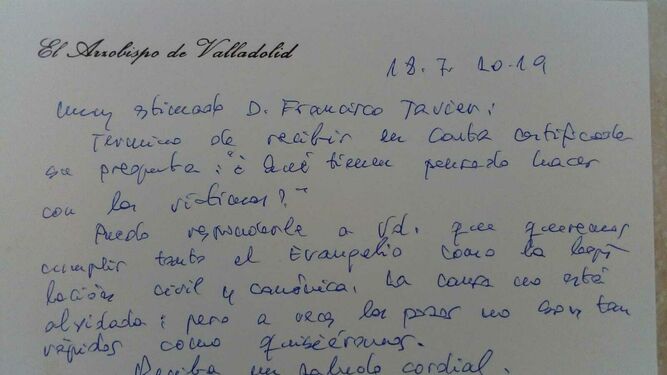 El Arzobispo de Valladolid
18.7.2019
Muy estimado D. Francisco Javier:
Termino de recibir en carta certificada
su pregunta: "¿Qué tienen pensado hacer
con las víctimas?"
Puedo responderle a Vd. que queremos
cumplir tanto el Evangelio como la legis
lación civil y canónica. La causa no está
olvidada; pero a veces los pasos no son tan
rápidos como quisiéramos.
Reciba un saludo cordial.